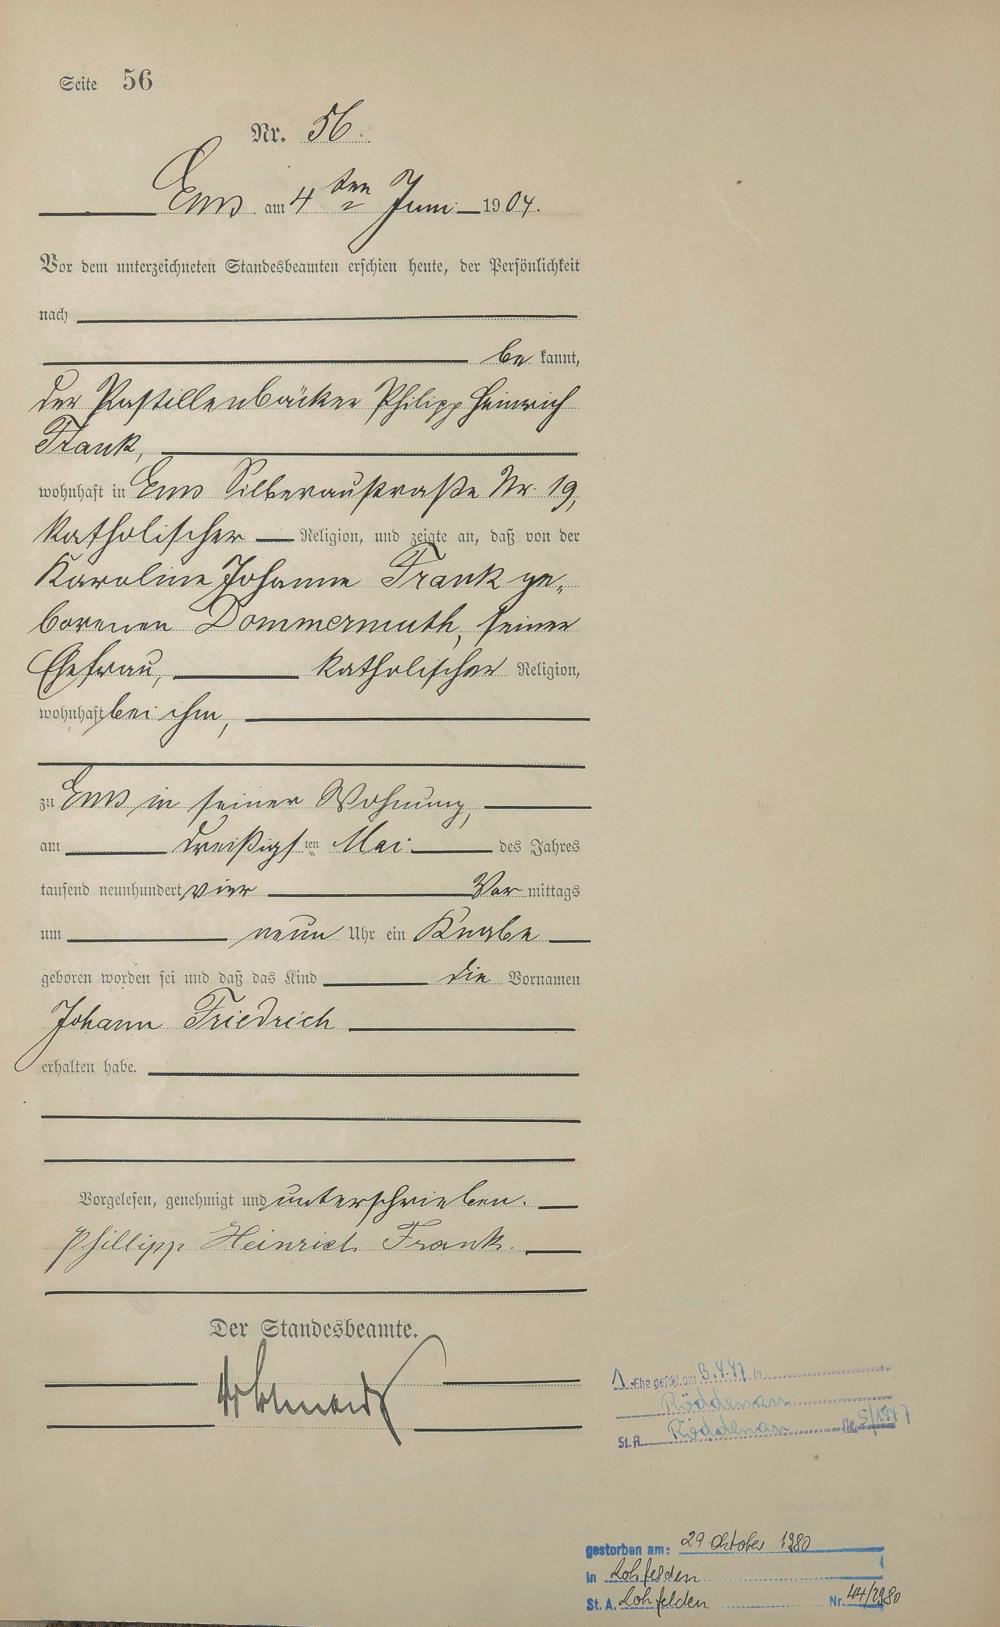 Seite 56
Nr. 56.
Ems am 4ten Juni 1904.
Vor dem unterzeichneten Standesbeamten erschien heute, der Persönlichkeit
nach
be kannt,
der Pastillenbäcker Philipp Heinrich
Frank,
wohnhaft in Ems Silberaustraße Nr. 19,
katholischer Religion, und zeigte an, daß von der
Karoline Johanne Frank ge-
borenen Dommermuth, seiner
Ehefrau, katholischer Religion,
wohnhaft bei ihm,
zu Ems in seiner Wohnung,
am dreißigsten Mai des Jahres
tausend neunhundert vier Vor mittags
um neun Uhr ein Knabe
geboren worden sei und daß das Kind die Vornamen
Johann Friedrich
erhalten habe.
Vorgelesen, genehmigt und unterschrieben.
Phillipp Heinrich Frank.
Der Standesbeamte.
1. Ehe geschl. am 3.4.47 in
Röddenau
St.A. Röddenau Nr. 5/1947
gestorben am: 29 Oktober 1980
in Lohfelden
St. A. Lohfelden Nr. 44/1980